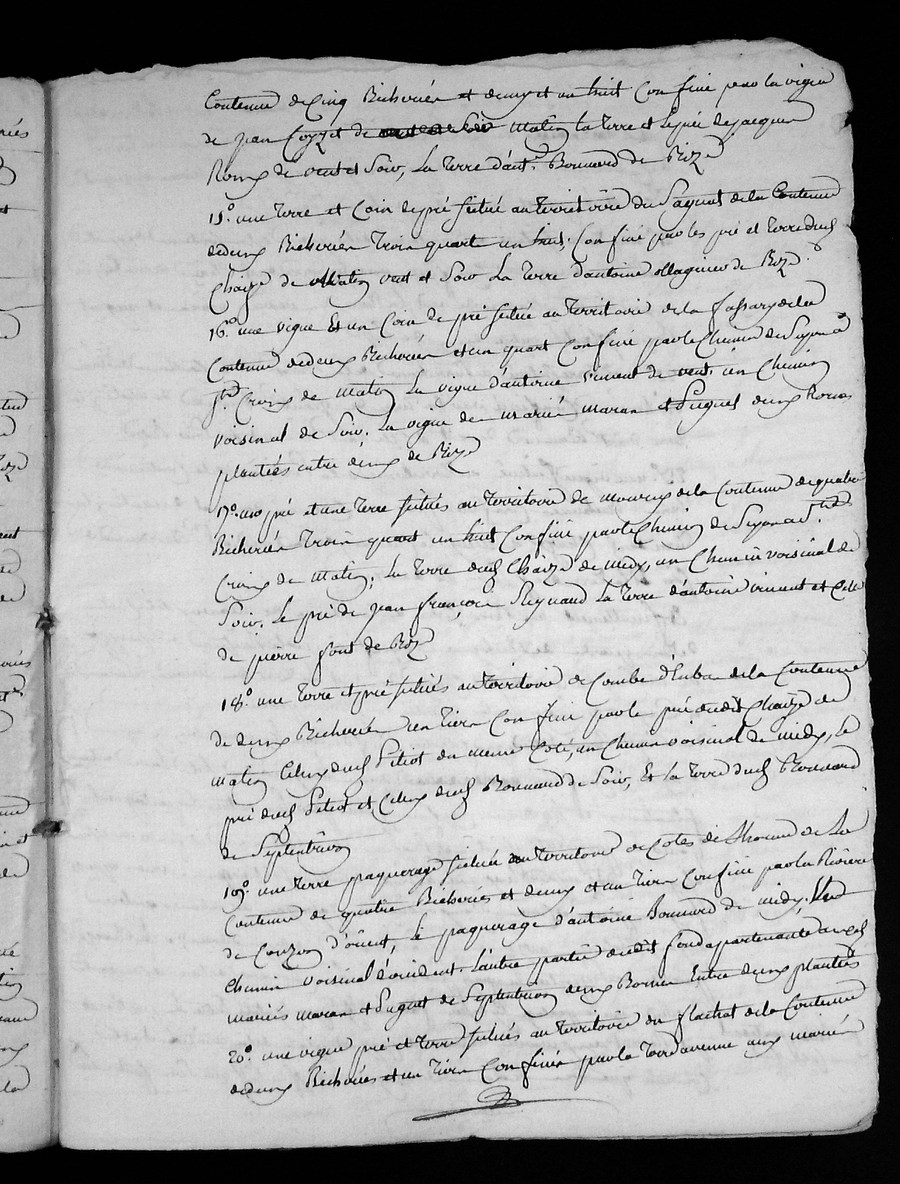 Contenue de Cinq Bicherées et demy et un huit Confiné par la vigne
de jean Coyzet de matin la terre et de jacques
Roux de vent et Soir, La Terre d'ant.e Bonnard de Bize
15.o une terre et Coin de pré situé au territoire du Saquet de la Contenue
de deux Bicherées Trois quarts un huit, Confiné par les pré et terre dud.
Chaize de Matin vent et Soir La terre d'antoine ollagnier de Bize.
16.o une vigne Et un Coin de pré situé au territoire de la de la
Contenue de deux Bicherées et un quart Confiné par le Chemin de à
Croix de Matin La vigne d'antoine vincent de vent, un Chemin
voisinal de Soir, La vigne de mariés maran et Puguet deux Bornes
plantées entre deux de Bize
17.o un pré et une Terre situés au territoire de de la Contenue de quatre
Bicherées Trois quart un huit Confiné par le Chemin de à
Croix de Matin, La terre dud. Chaize de midy, un Chemin voisinal de
Soir, Le pré de jean françois Reynaud La terre d'antoine vincent et Celle
de pierre font de Bize
18.o une terre et pré situés au territoire de Combe de la Contenue
de deux Bicherées un tiers Confiné par le pré dudit Chaize de
matin Celuy dud. Petiot du meme Coté, un Chemin voisinal de midy, Le
pré dud. Petiot et Celuy dud. Bonnard de Soir, Et la terre dud. Bonnard
de Septentrion
19.o une terre paquerage située au territoire de Cotes de de La
Contenue de quatre Bicherées et demy et un tiers Confiné par la Riviere
de Couzon d'orient, Le paquerage d'antoine Bonnard de midy, Un
Chemin voisinal d'occident. L'autre partie dudit fond apartenante aud.
mariés maran et Puguet de Septentrion deux Bornes Entre deux plantées
20.o une vigne pré et terre situés au territoire du flachat de la Contenue
de deux Bicherées et un tiers Confinés par la Terre avenue aux mariés